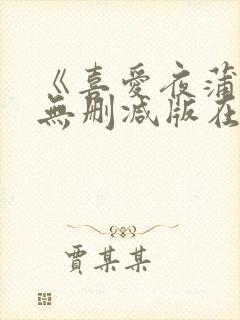 《喜愛夜蒲
無刪減版在
賈某某